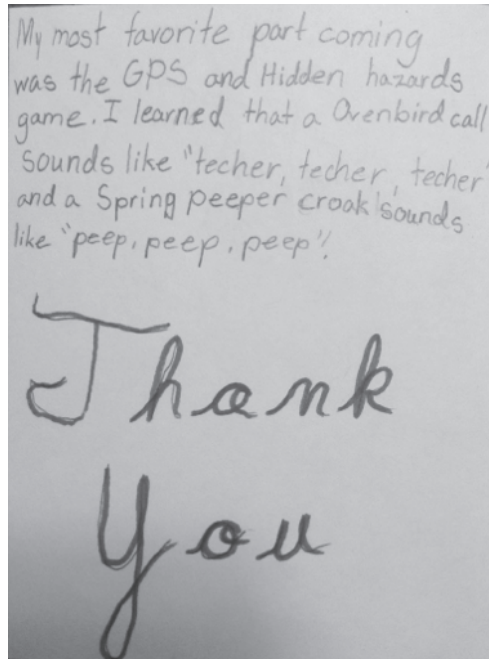 My most favorite part coming
was the GPS and Hidden hazards
game. I learned that a Ovenbird call
sounds like "techer, techer, techer"
and a Spring peeper croak sounds
like "peep, peep, peep"!
Thank
You